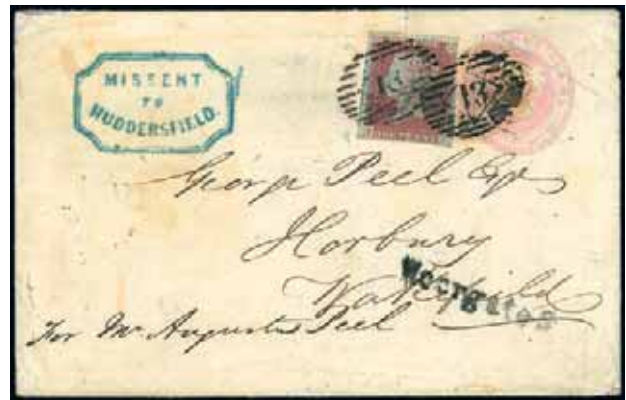 MISSENT
TO
HUDDERSFIELD.
13
13
George Peel Esqre
Horbury
Wakefield
Moorgate
For Mr. Augustus Peel